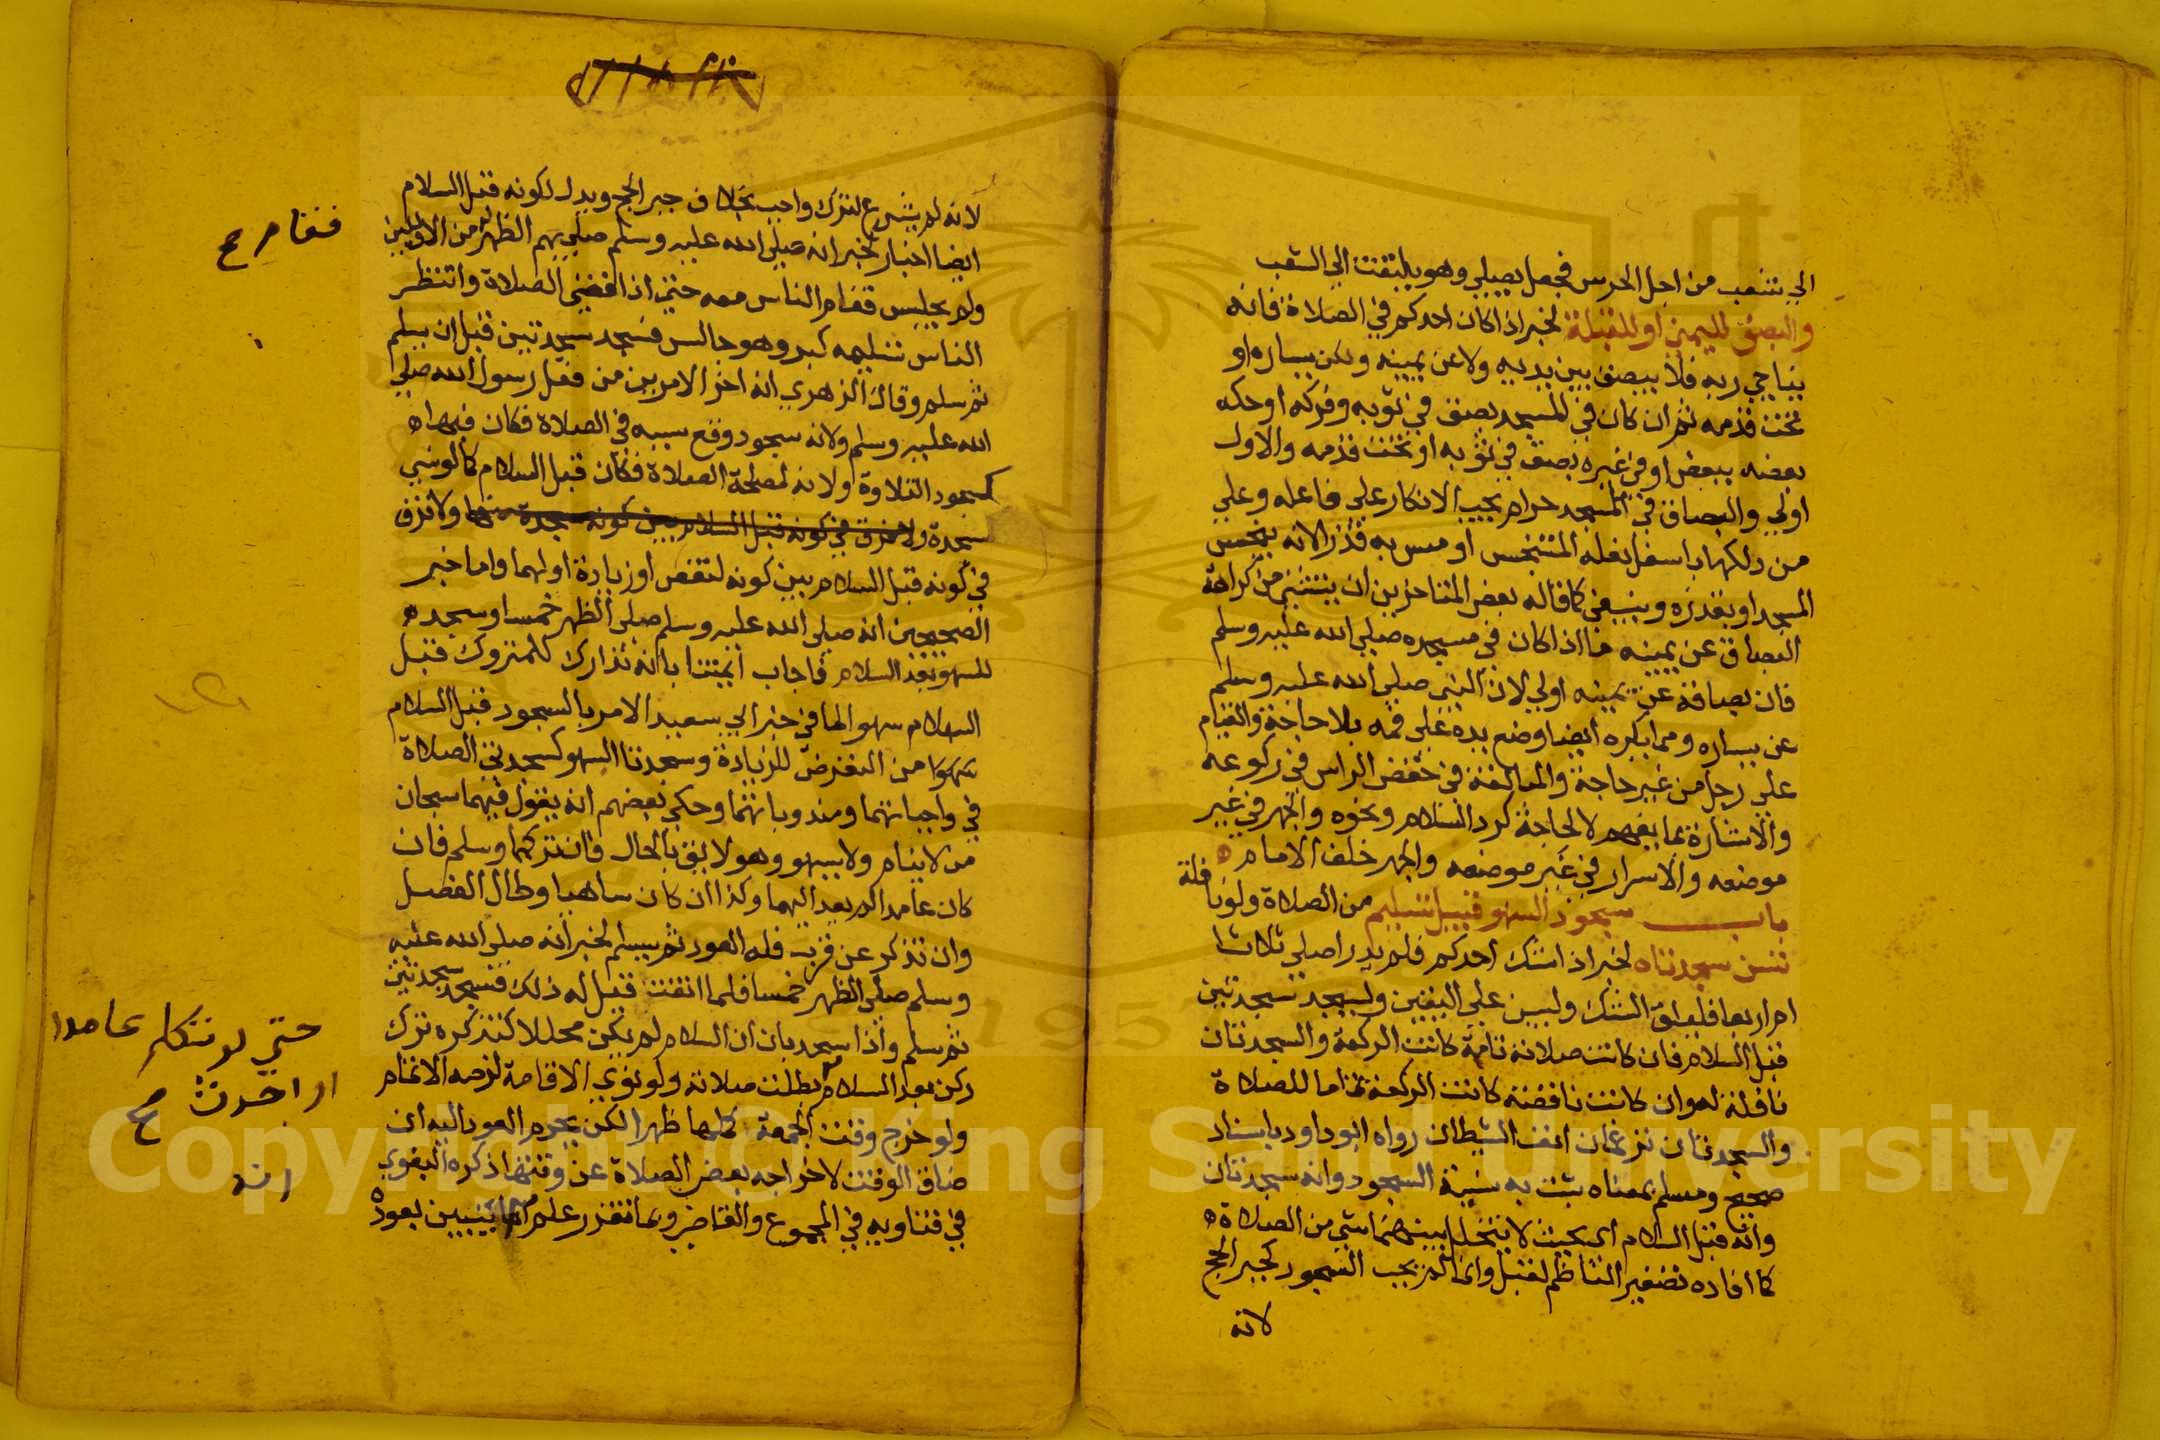 الى شعب من اجل الحرس فجعل يصلي وهو يلتفت الى الشعب
والبصق لليمين او للقبلة لخبر اذا كان احدكم في الصلاة فانه
يناجي ربه فلا يبصق بين يديه ولا عن يمينه ولكن يساره او
تحت قدمه ثم ان كان في المسجد بصق في ثوبه وفركه او حكه
بعضه ببعض او في غيره بصق في ثوبه او تحت قدمه والاول
اولى والبصاق في المسجد حرام يجب الانكار على فاعله وعلى
من دلكها باسفل نعله المتنجس او مس به قذرا لانه ينجس
المسجد او يقذره وينبغي كما قاله بعض المتاخرين ان يستثنى من كراهة
البصاق عن يمينه ما اذا كان في مسجده صلى الله عليه وسلم
فان بصاقه عن يمينه اولى لان النبي صلى الله عليه وسلم
عن يساره ومما يكره ايضا وضع يده على فمه بلا حاجة والقيام
على رجل من غير حاجة والمبالغة في خفض الراس في ركوعه
والاشارة بما يفهم لا لحاجة كرد السلام ونحوه والجهر في غير
موضعه والاسرار في غير موضعه والجهر خلف الامام
باب سجود السهو قبيل تسليم من الصلاة ولو نافلة
تسن سجدتاه لخبر اذا شك احدكم فلم يدر اصلى ثلاثا
ام اربعا فليلق الشك وليبن على اليقين وليسجد سجدتين
قبل السلام فان كانت صلاته تامة كانت الركعة والسجدتان
نافلة له وان كانت ناقصة كانت الركعة تماما للصلاة
والسجدتان ترغمان انف الشيطان رواه ابو داود باسناد
صحيح ومسلم بمعناه ثبت به سنية السجود وانه سجدتان
وانه قبل السلام اي بحيث لا يتخلل بينهما شي من الصلاة
كما افاده تصغير الناظم لقبل وانما لم يجب السجود كجبر الحج
لانه
لانه لم يشرع لترك واجب بخلاف جبر الحج ويدل لكونه قبل السلام
ايضا اخبار كخبر انه صلى الله عليه وسلم صلى بهم الظهر من الاوليين
ولم يجلس فقام الناس معه حتى اذا قضى الصلاة وانتظر
الناس تسليمه كبر وهو جالس فسجد سجدتين قبل ان يسلم
ثم سلم وقال الزهري انه اخر الامرين من فعل رسول الله صلى
الله عليه وسلم ولانه سجود وقع سببه في الصلاة فكان فيها
كسجود التلاوة ولانه لمصلحة الصلاة فكان قبل السلام كما لو نسي
سجدة ولا فرق في كونه قبل السلام بين كونه سجدة منها ولا فرق
في كونه قبل السلام بين كونه لنقص او زيادة او لهما واما خبر
الصحيحين انه صلى الله عليه وسلم صلى الظهر خمسا وسجد
للسهو بعد السلام فاجاب ايمتنا بانه تدارك للمتروك قبل
السلام سهوا لما في خبر ابي سعيد الامر بالسجود قبل السلام
من التعرض للزيادة وسجدتا السهو كسجدتي الصلاة
في واجباتهما ومندوباتهما وحكى بعضهم انه يقول فيهما سبحان
من لا ينام ولا يسهو وهو لايق بالحال فان تركهما وسلم فان
كان عامدا لم يعد اليهما وكذا ان كان ساهيا وطال الفصل
وان تذكر عن قرب فله العود ثم يسلم لخبر انه صلى الله عليه
وسلم صلى الظهر خمسا فلما انفتل قيل له ذلك فسجد سجدتين
ثم سلم واذا سجد بان ان السلام لم يكن محللا كتذكره ترك
ركن بعد السلام بطلت صلاته ولو نوى الاقامة لزمه الاتمام
ولو خرج وقت الجمعة كملها ظهرا لكن يحرم العود اليه ان
ضاق الوقت لاخراجه بعض الصلاة عن وقتها ذكره البغوي
في فتاويه في المجموع والقاضي وبما تقرر علم يتبين بعوده
فقام ح
حتى لو تكلم عامدا
او احدث
ح
انه
Copyright © King Saud University
1957